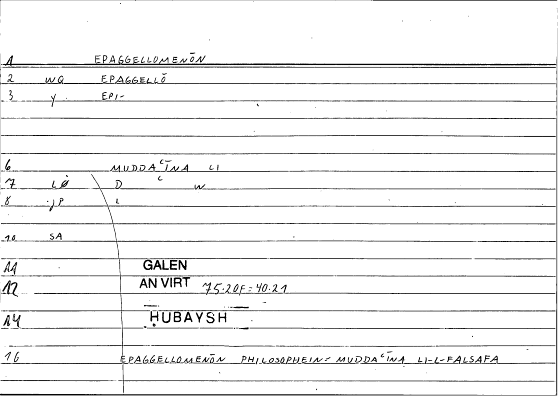 1 EPAGGELLOMENŌN
2 WQ EPAGGELLŌ
3 Y EPI-
6 MUDDAʿĪNA LI
7 LØ D ʿ W
8 JP L
10 SA
11 GALEN
12 AN VIRT 75.20F=40.21
14 ḤUBAYSH
16 EPAGGELLOMENŌN PHILOSOPHEIN= MUDDAʿĪNA LI-L-FALSAFA